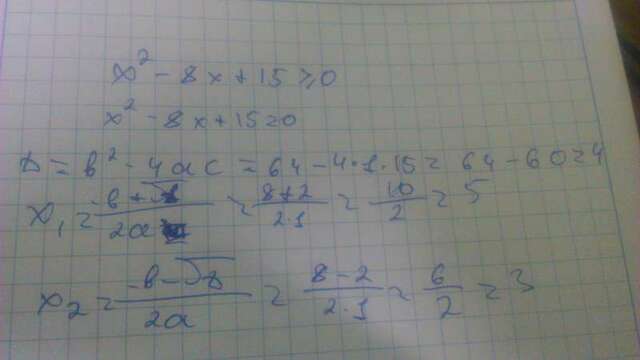 x² - 8x + 15 ≥ 0
x² - 8x + 15 = 0
D = b² - 4ac = 64 - 4·1·15 = 64 - 60 = 4
x₁ = (-b + √D)/(2a) = (8+2)/(2·1) = 10/2 = 5
x₂ = (-b - √D)/(2a) = (8-2)/(2·1) = 6/2 = 3